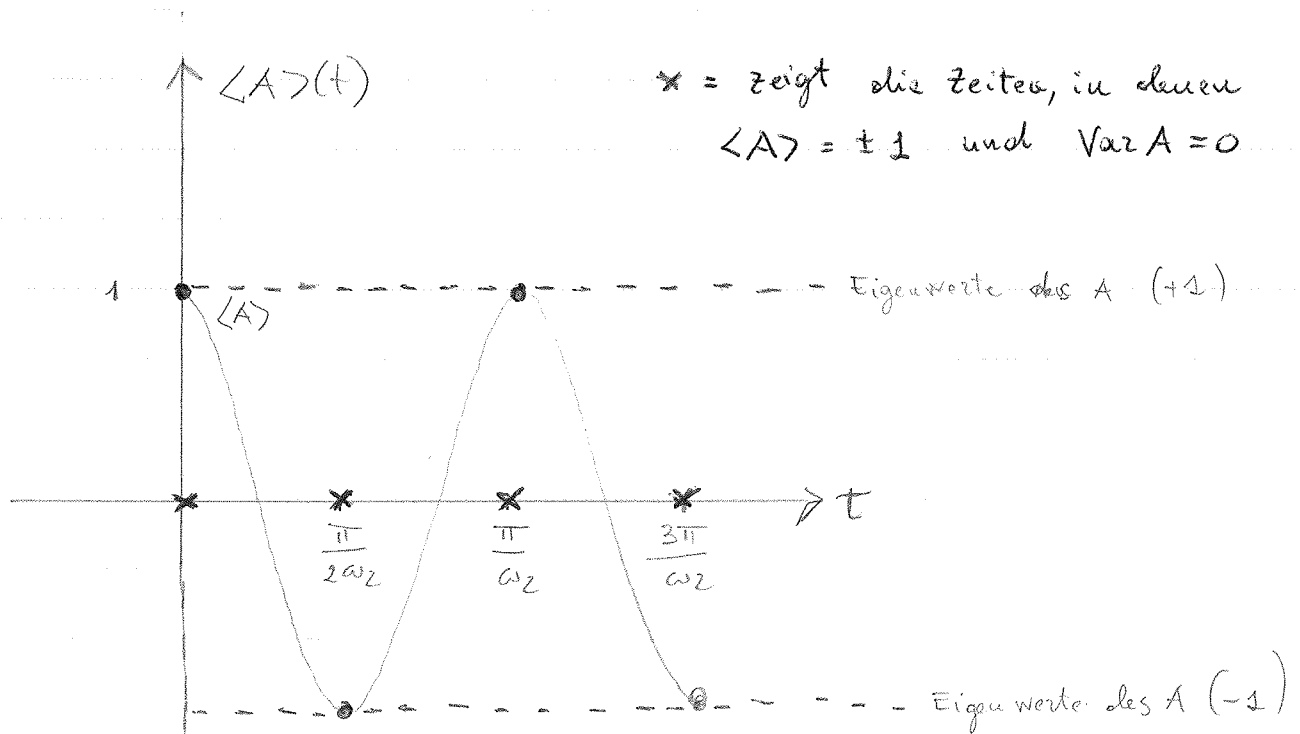 <A>(t)
x = zeigt die Zeiten, in denen
<A> = ± 1 und Var A = 0
1
Eigenwerte des A (+1)
<A>
t
π/2ω2
π/ω2
3π/ω2
Eigenwerte des A (-1)